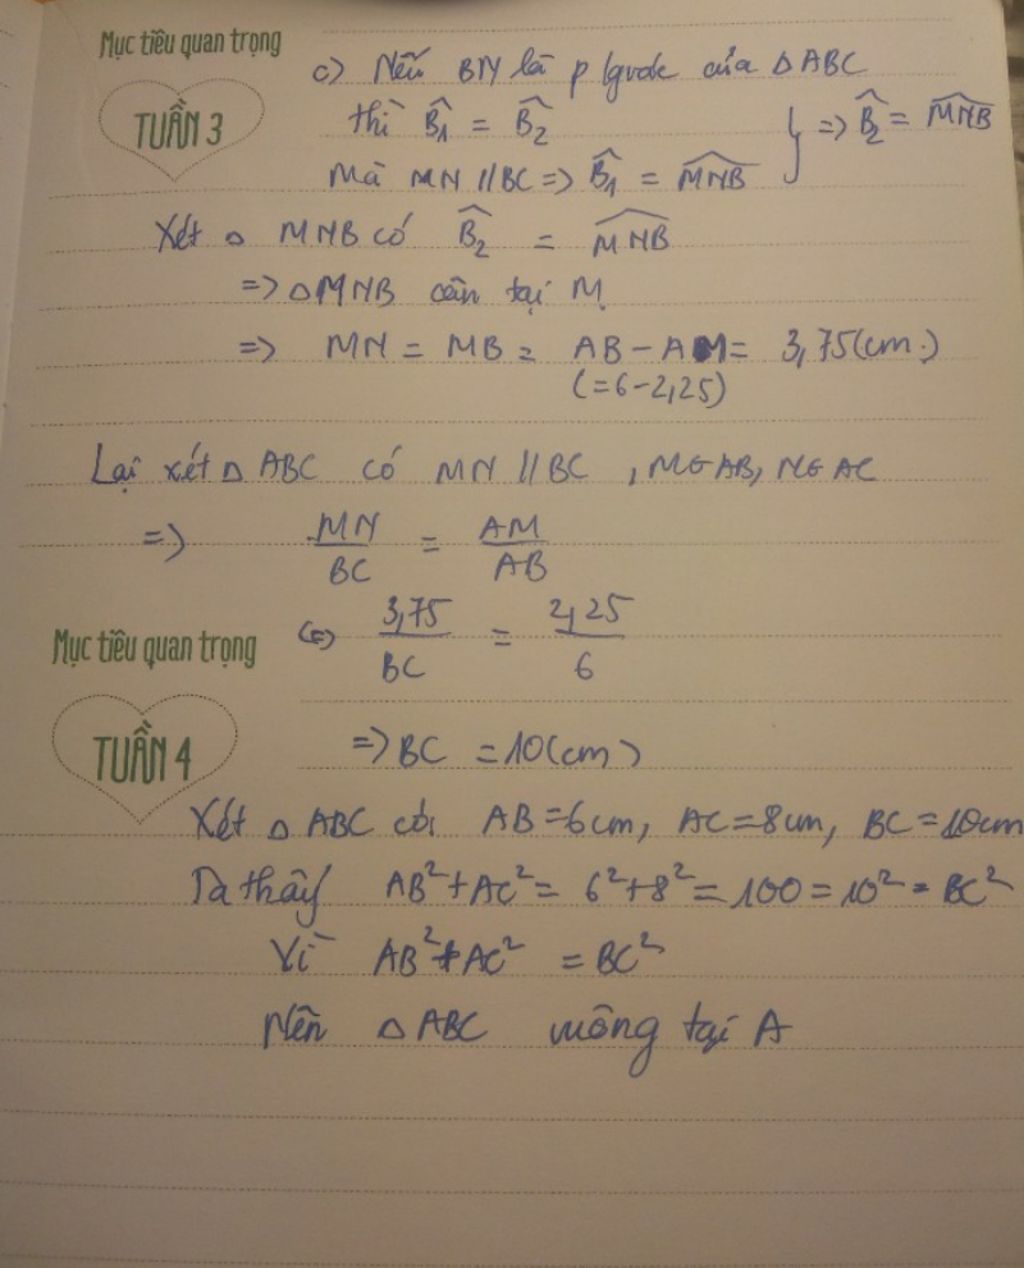 Mục tiêu quan trọng
TUẦN 3
c) Nếu BN là p/giác của △ABC
thì B̂₁ = B̂₂
Mà MN // BC => B̂₁ = M͡NB } => B̂₂ = M͡NB
Xét △ MNB có B̂₂ = M͡NB
=> △MNB cân tại M
=> MN = MB = AB - AM = 3,75(cm.)
(=6-2,25)
Lại xét △ ABC có MN // BC , M∈AB, N∈AC
=> MN/BC = AM/AB
(=) 3,75/BC = 2,25/6
Mục tiêu quan trọng
TUẦN 4
=> BC = 10(cm)
Xét △ ABC có: AB=6cm, AC=8cm, BC=10cm
Ta thấy AB²+AC² = 6²+8² = 100 = 10² = BC²
Vì AB²+AC² = BC²
Nên △ABC vuông tại A